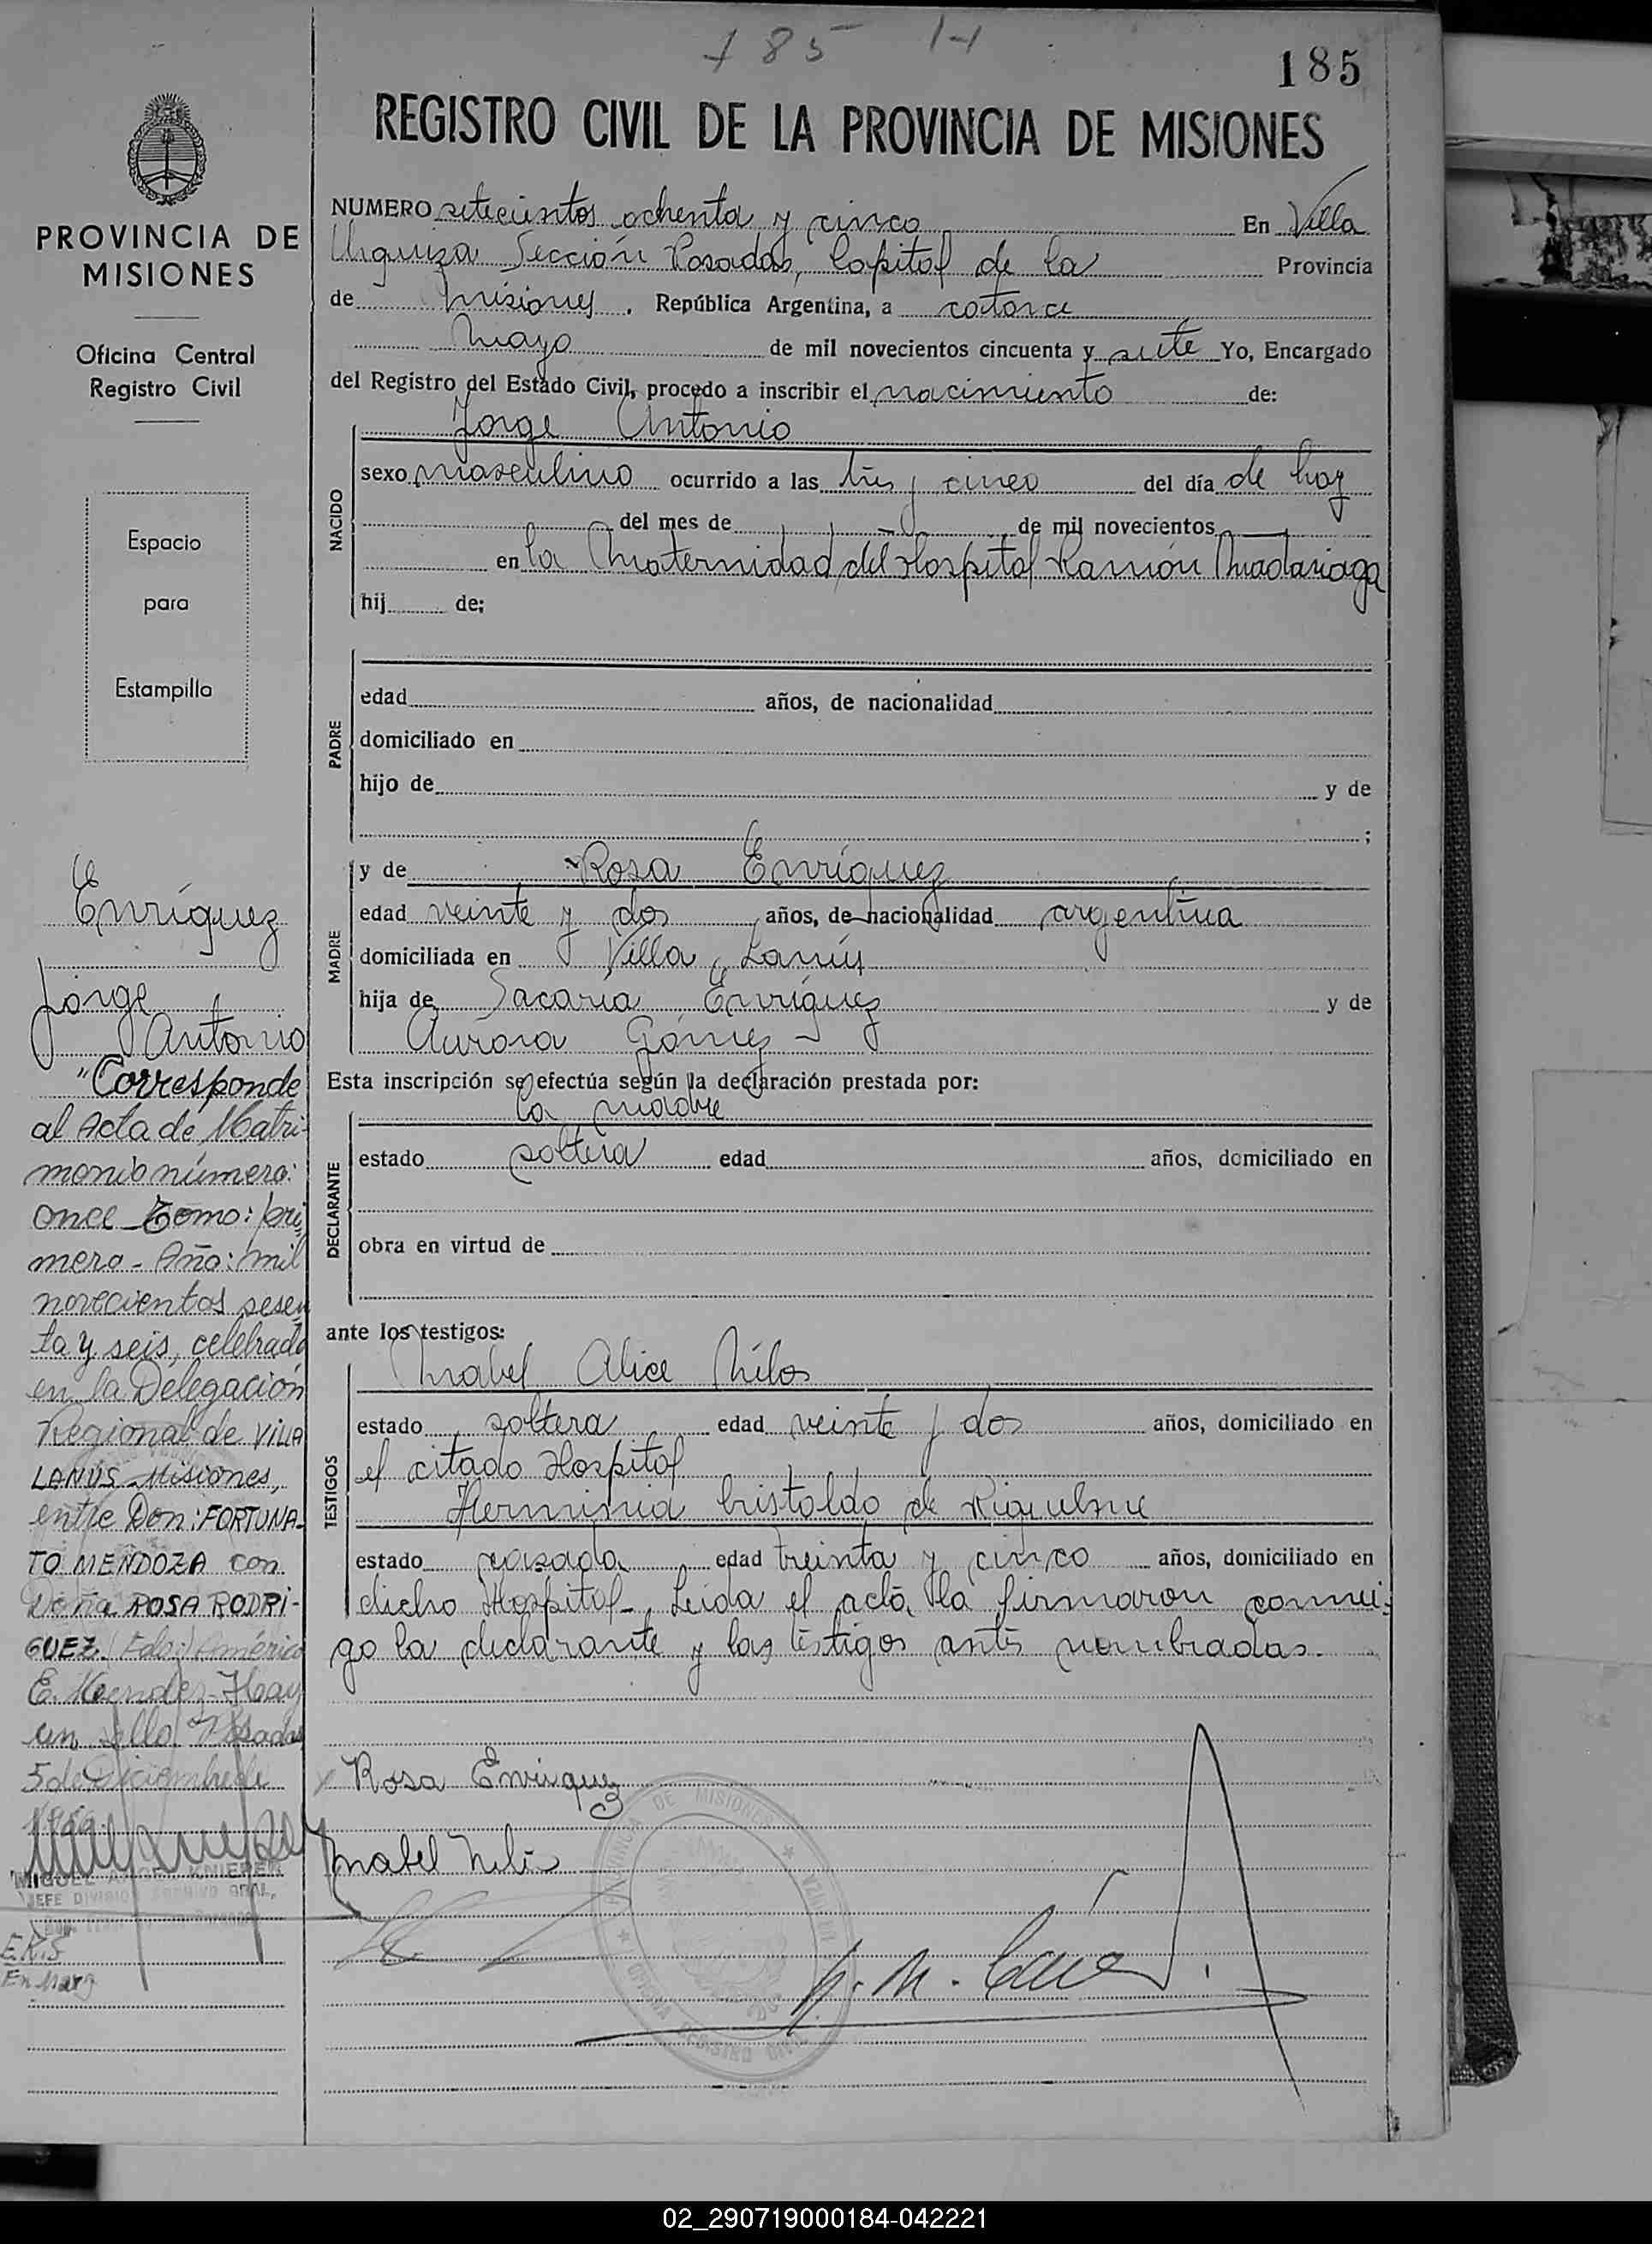 185
185
REGISTRO CIVIL DE LA PROVINCIA DE MISIONES
PROVINCIA DE
MISIONES
Oficina Central
Registro Civil
Espacio
para
Estampilla
Enríquez
Jorge
Antonio
"Corresponde
al Acta de Matri-
monio número:
once Tomo: pri
mero - Año: mil
novecientos sesen
ta y seis, celebrado
en la Delegación
Regional de VILLA
LANUS Misiones,
entre Don: FORTUNA-
TO MENDOZA con
Doña ROSA RODRI-
GUEZ. Fdo: Américo
E. - Hay
un sello. Posadas
5 de Diciembre de
MIGUEL KNIEPER
JEFE DIVISION ARCHIVO GRAL.
E.R.S
NUMERO setecientos ochenta y cinco En Villa
Urquiza Sección Posadas, Capital de la Provincia
de Misiones . República Argentina, a catorce
Mayo de mil novecientos cincuenta y siete Yo, Encargado
del Registro del Estado Civil, procedo a inscribir el nacimiento de:
Jorge Antonio
NACIDO
sexo masculino ocurrido a las tres y cinco del día de hoy
del mes de de mil novecientos
en la Maternidad del Hospital Ramón Madariaga
hij de;
PADRE
edad años, de nacionalidad
domiciliado en
hijo de y de
;
MADRE
y de Rosa Enríquez
edad veinte y dos años, de nacionalidad argentina
domiciliada en Villa Lanús
hija de Sacaría Enríquez y de
Aurora Gómez -
Esta inscripción se efectúa según la declaración prestada por:
la madre
DECLARANTE
estado soltera edad años, domiciliado en
obra en virtud de
ante los testigos:
Mabel Alice
TESTIGOS
estado soltera edad veinte y dos años, domiciliado en
el citado Hospital
Herminia Cristaldo de Riquelme
estado casada edad treinta y cinco años, domiciliado en
dicho Hospital - Leída el acta, la firmaron conmi-
go la declarante y las testigos antes nombradas.
Rosa Enriquez
Mabel
02_290719000184-042221